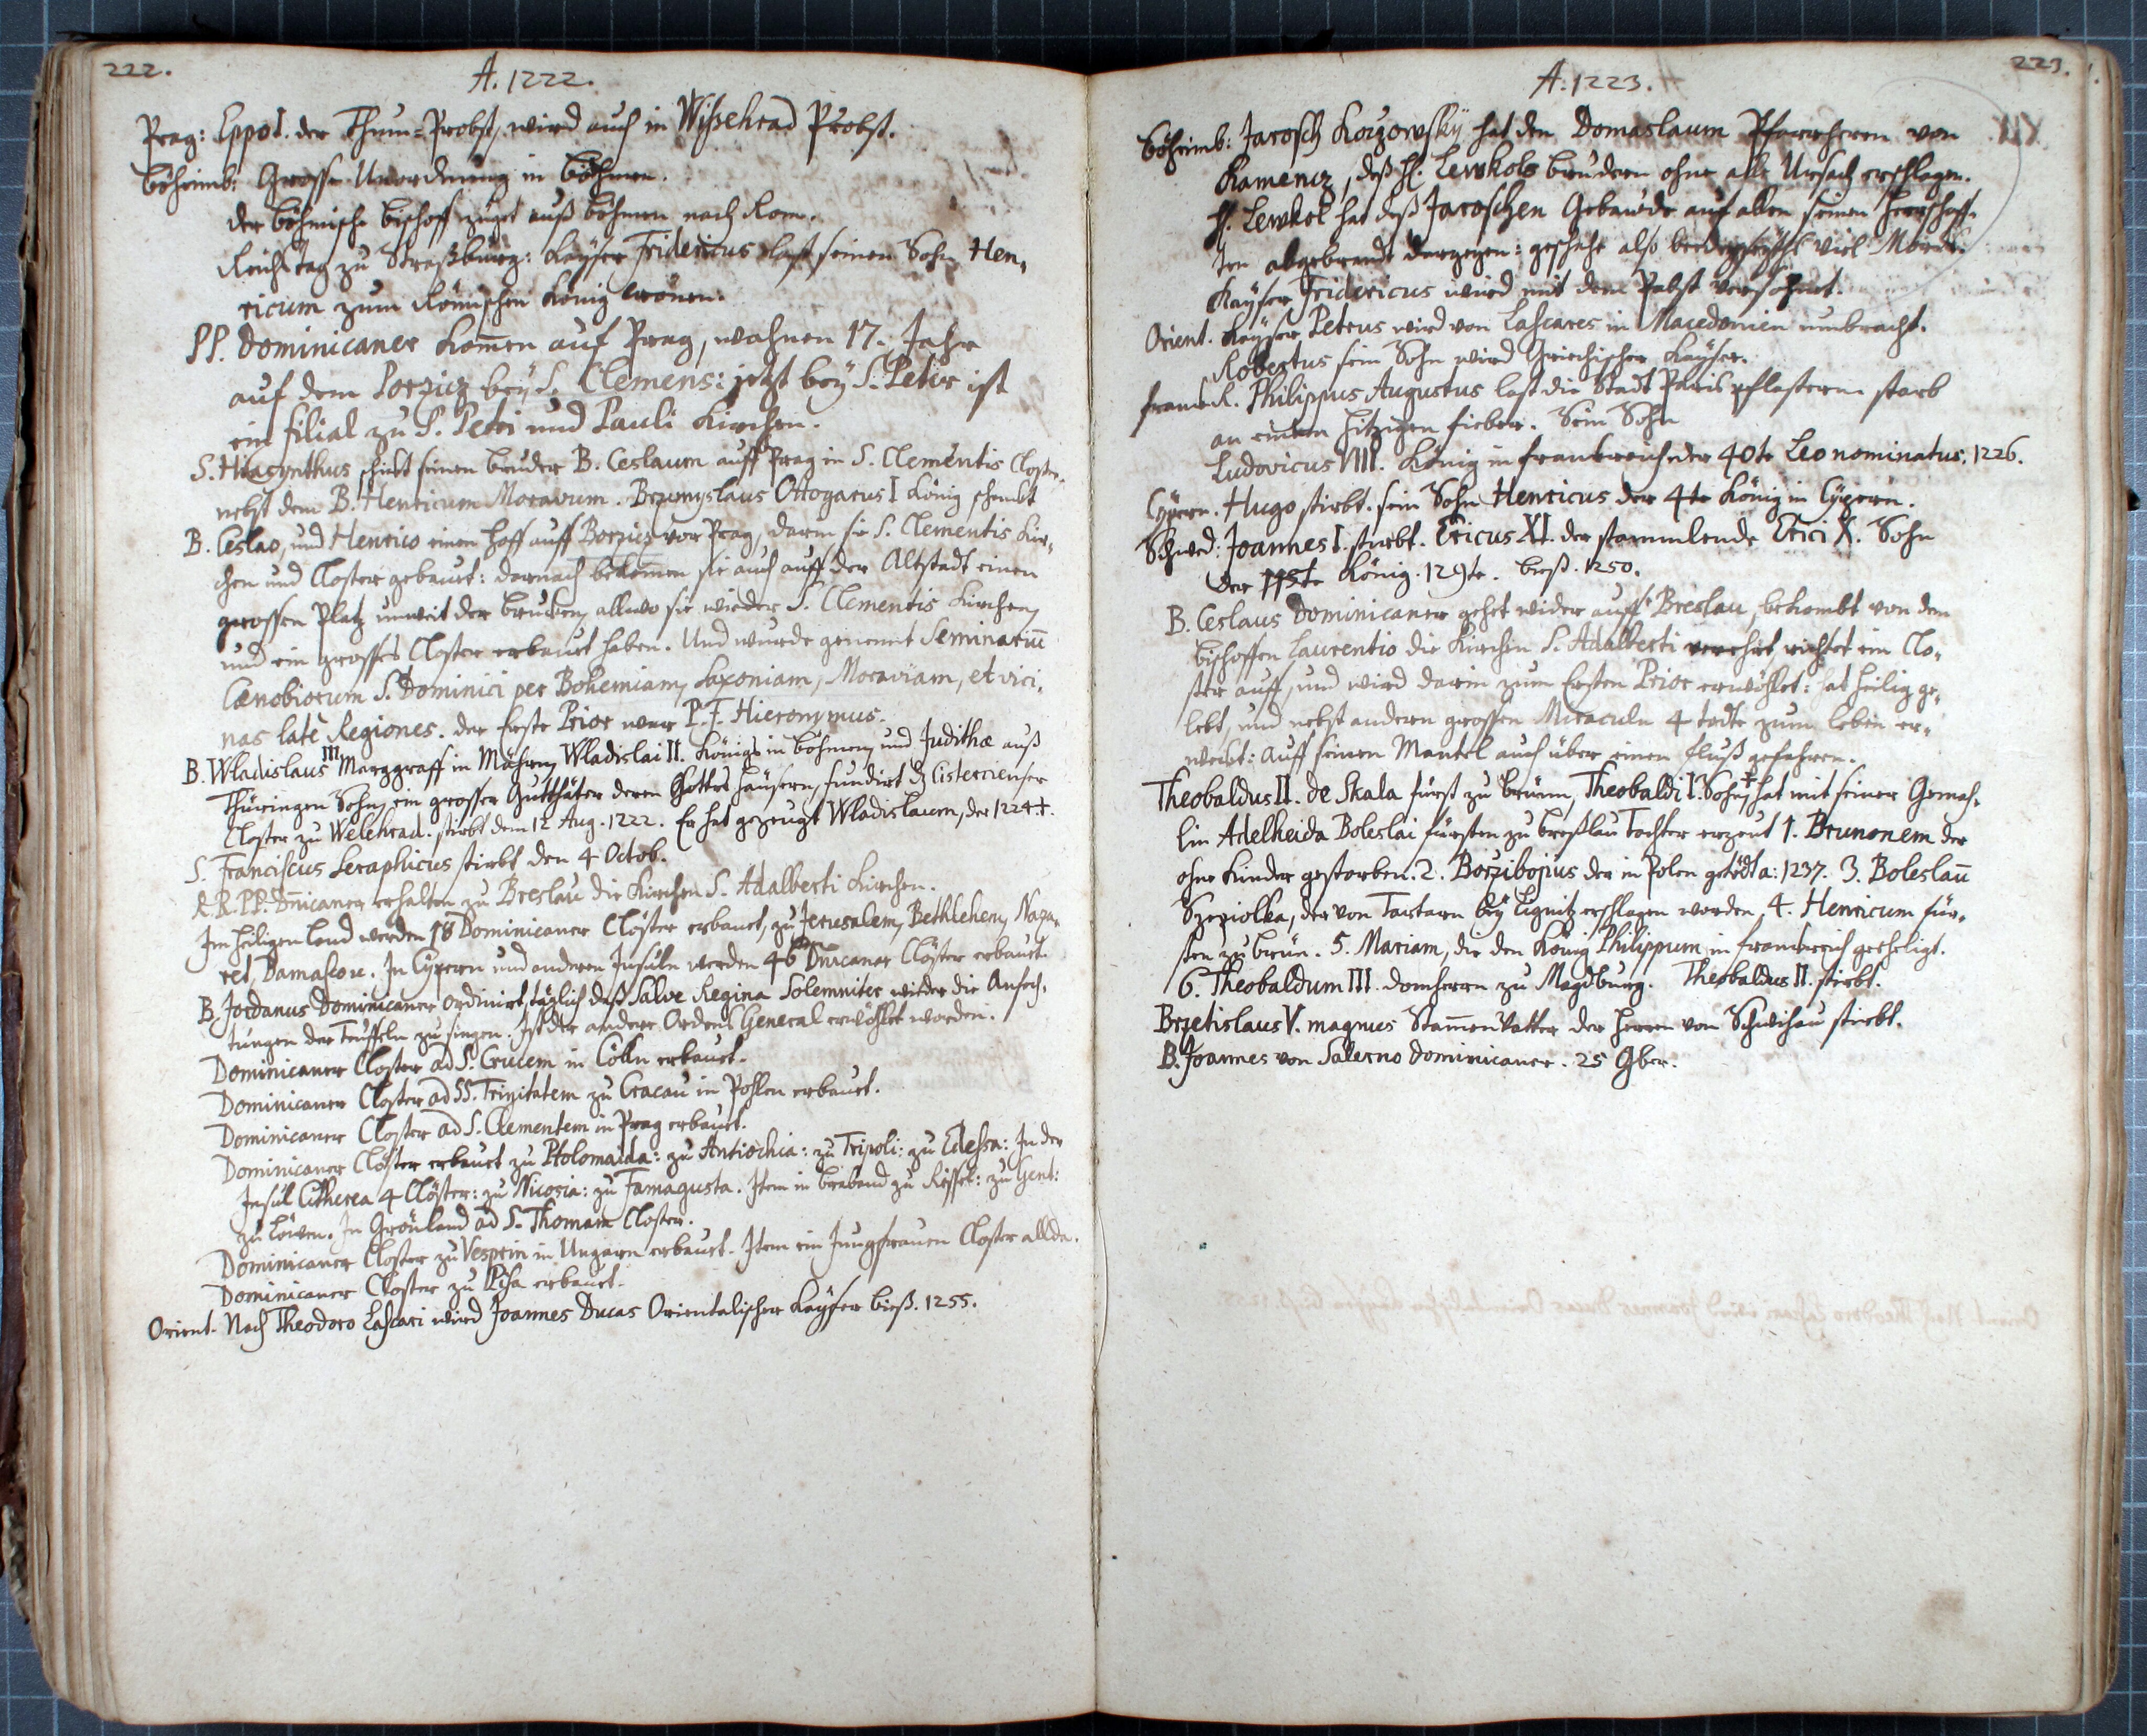 222.
A. 1222.
Prag: Eppo I. der Thum-Probst, wird auch in Wißehrad Probst.
Böheimb: Grosse Unordnung in Böhmen.
der Böhmische Bischoff zuget auß Böhmen nach Rom.
Reichstag zu Straßburg: Kayser Fridericus last seinen Sohn Hen,
ricum zum Römischen König krönen.
PP. Dominicaner kom̄en auf Prag, wohnen 17. Jahr
auf dem Porzicz bey S. Clemens: jetzt bey S. Petir ist
ein filial zu S. Petri und Pauli Kirchen.
S. Hiacynthus schickt seinen bruder B. Ceslaum auff Prag in S. Clementis Closter
nebst dem B. Henricum Moravum. Brzemyslaus Ottogarus I König schenkt
B. Ceslao, und Henrico einen Hoff auff Borzicz vor Prag, darin sie S. Clementis Kir,
chen und Closter gebaut: darnach bekom̄en sie auch auff der Altstadt einen
grossen Platz unweit der brucken, allwo sie wieder S. Clementis Kirchen,
und ein grosses Closter erbaut haben. Und wurde genennt Seminariū
Cænobiorum S. Dominici per Bohemiam, Saxoniam, Moraviam, et vici,
nas latè Regiones. der Erste Prior war P. F. Hieronymus.
B. Wladislaus III Marggraff in Mähren, Wladislai II. Königs in Böhmen, und Judithæ auß
Thüringen Sohn, ein grosser Gutthäter deren Gottes Häusern, fundirt dz Cistercienser
Closter zu Welehrad. stirbt dem 12 Aug. 1222. Er hat gezeugt Wladislaum, der 1224 †.
S. Franciscus Seraphicus stirbt den 4 Octob.
R. R. PP. Dn̄icaner erhalten zu Breslau die Kirchen S. Adalberti Kirchen.
Im heiligen Land werden 18 Dominicaner Clöster erbaut, zu Jerusalem, Bethlehem, Naza,
ret, Damascou. In Cypern und anderen Insulen werden 46 Dn̄icaner Clöster erbaut.
B. Jordanus Dominicaner ordinirt, täglich daß Salve Regina Solemniter wieder die Anfech,
tungen der Teuffeln zu singen. Ist der andere Ordens General erwöhlet worden.
Dominicaner Closter ad S. Crucem in Cölln erbaut.
Dominicaner Closter ad SS. Trinitatem zu Cracau in Pohlen erbaut.
Dominicaner Closter ad S. Clementem in Prag erbaut.
Dominicaner Clöster erbaut zu Ptolomaida: zu Antiochia: zu Tripoli: zu Edessa: In der
Insul Citherea 4 Clöster: zu Nicosia: zu Famagusta. Item in braband zu Rissel: zu Gent:
zu Löwen. In Grönland ad S. Thomam Closter.
Dominicaner Closter zu Vesprin in Ungarn erbaut. Item ein Jungfrauen Closter allda.
Dominicaner Closter zu Pisa erbaut.
Orient. Nach Theodoro Lascari wird Joannes Ducas Orientalischer Kayser bieß. 1255.
223.
A: 1223.
Böheimb: Jarosch Korzowsky hat den Domaslaum Pfarrherrn von
Kamenicz, deß H. Lewkols brudern ohne alle Ursach erschlagen.
H. Lewkol hat deß Jaroschen Gebaude auf allen seinen Herrschaff,
ten abgebrandt dargegen: geschahe also viel Mordt.
Kayser Fridericus wird mit dem Pabst versöhnet.
Orient. Kayser Petrus wird von Lascares in Macedonien umbracht.
Robertus sein Sohn wird Griechischer Kayser.
Frank R. Philippus Augustus last die Stadt Paris pflastern starb
an einem hitzigen fieber. Sein Sohn
Ludovicus VIII. König in Frankreich der 40te Leo nominatus. 1226.
Cypern. Hugo stirbt. sein Sohn Henricus der 4te König in Cypern.
Schwed: Joannes I. stirbt. Ericus XI. der stammlende Erici X. Sohn
der König. 129te. bieß. 1250.
B. Ceslaus Dominicaner gehet wider auff Breslau, bekombt von dem
bischoffen Laurentio die Kirchen S. Adalberti verehrt, richtet ein Clo,
ster auff, und wird darin zum Ersten Prior erwöhlet: hat heilig ge,
lebt, und nebst andern grossen Miraculn 4 todte zum Leben er,
wekt: auff seinen Mantel auch über einen fluß gefahren.
Theobaldus II. de Skala fürst zu Brünn, Theobaldi I. Sohn, † hat mit seiner Gemah,
lin Adelheida Boleslai fürsten zu Breßlau Tochter erzeut 1. Brunonem der
ohne Kinder gestorben. 2. Borzibojus der in Polen getödt a: 1237. 3. Boleslaū
Szepiolka, der von Tartarn bey Lignitz erschlagen worden, 4. Henricum für,
sten zu Brün. 5. Mariam, die den König Philippum in Frankreich geeheligt.
6. Theobaldum III. Domherrn zu Magdburg. Theobaldus II. stirbt.
Brzetislaus V. magnus Stam̄en Vatter der Herren von Schwihau stirbt.
B. Joannes von Salerno Dominicaner. 25 9ber.